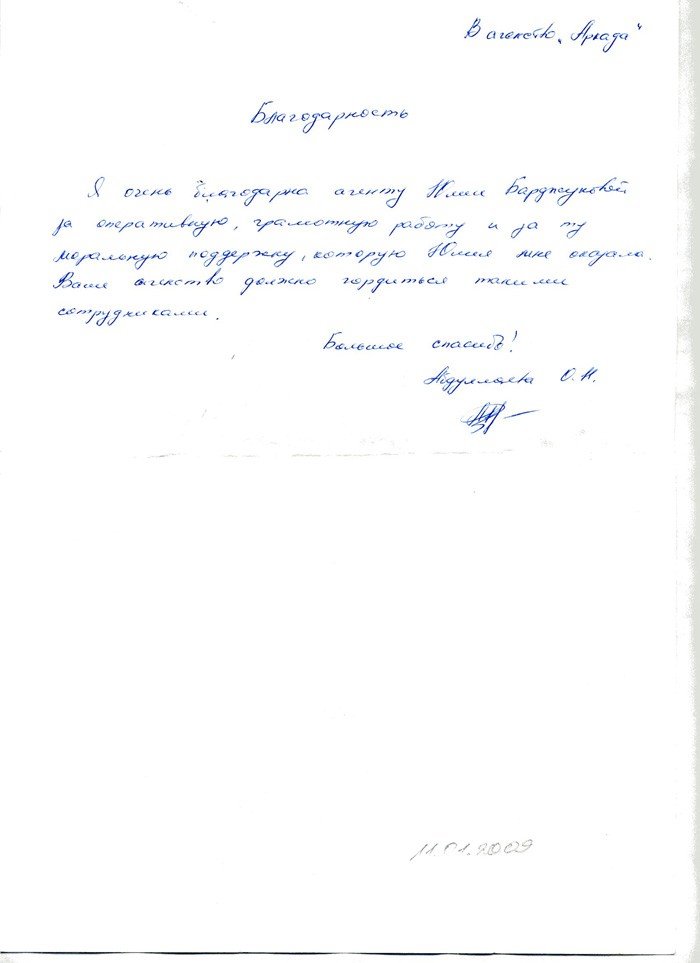 В агенство „Аркада"
Благодарность
Я очень благодарна агенту Юлии Барджуковой
за оперативную, грамотную работу и за ту
моральную поддержку, которую Юлия мне оказала.
Ваше агенство должно гордиться такими
сотрудниками.
Большое спасибо!
Абдуллаева О.Н.
11.01.2009